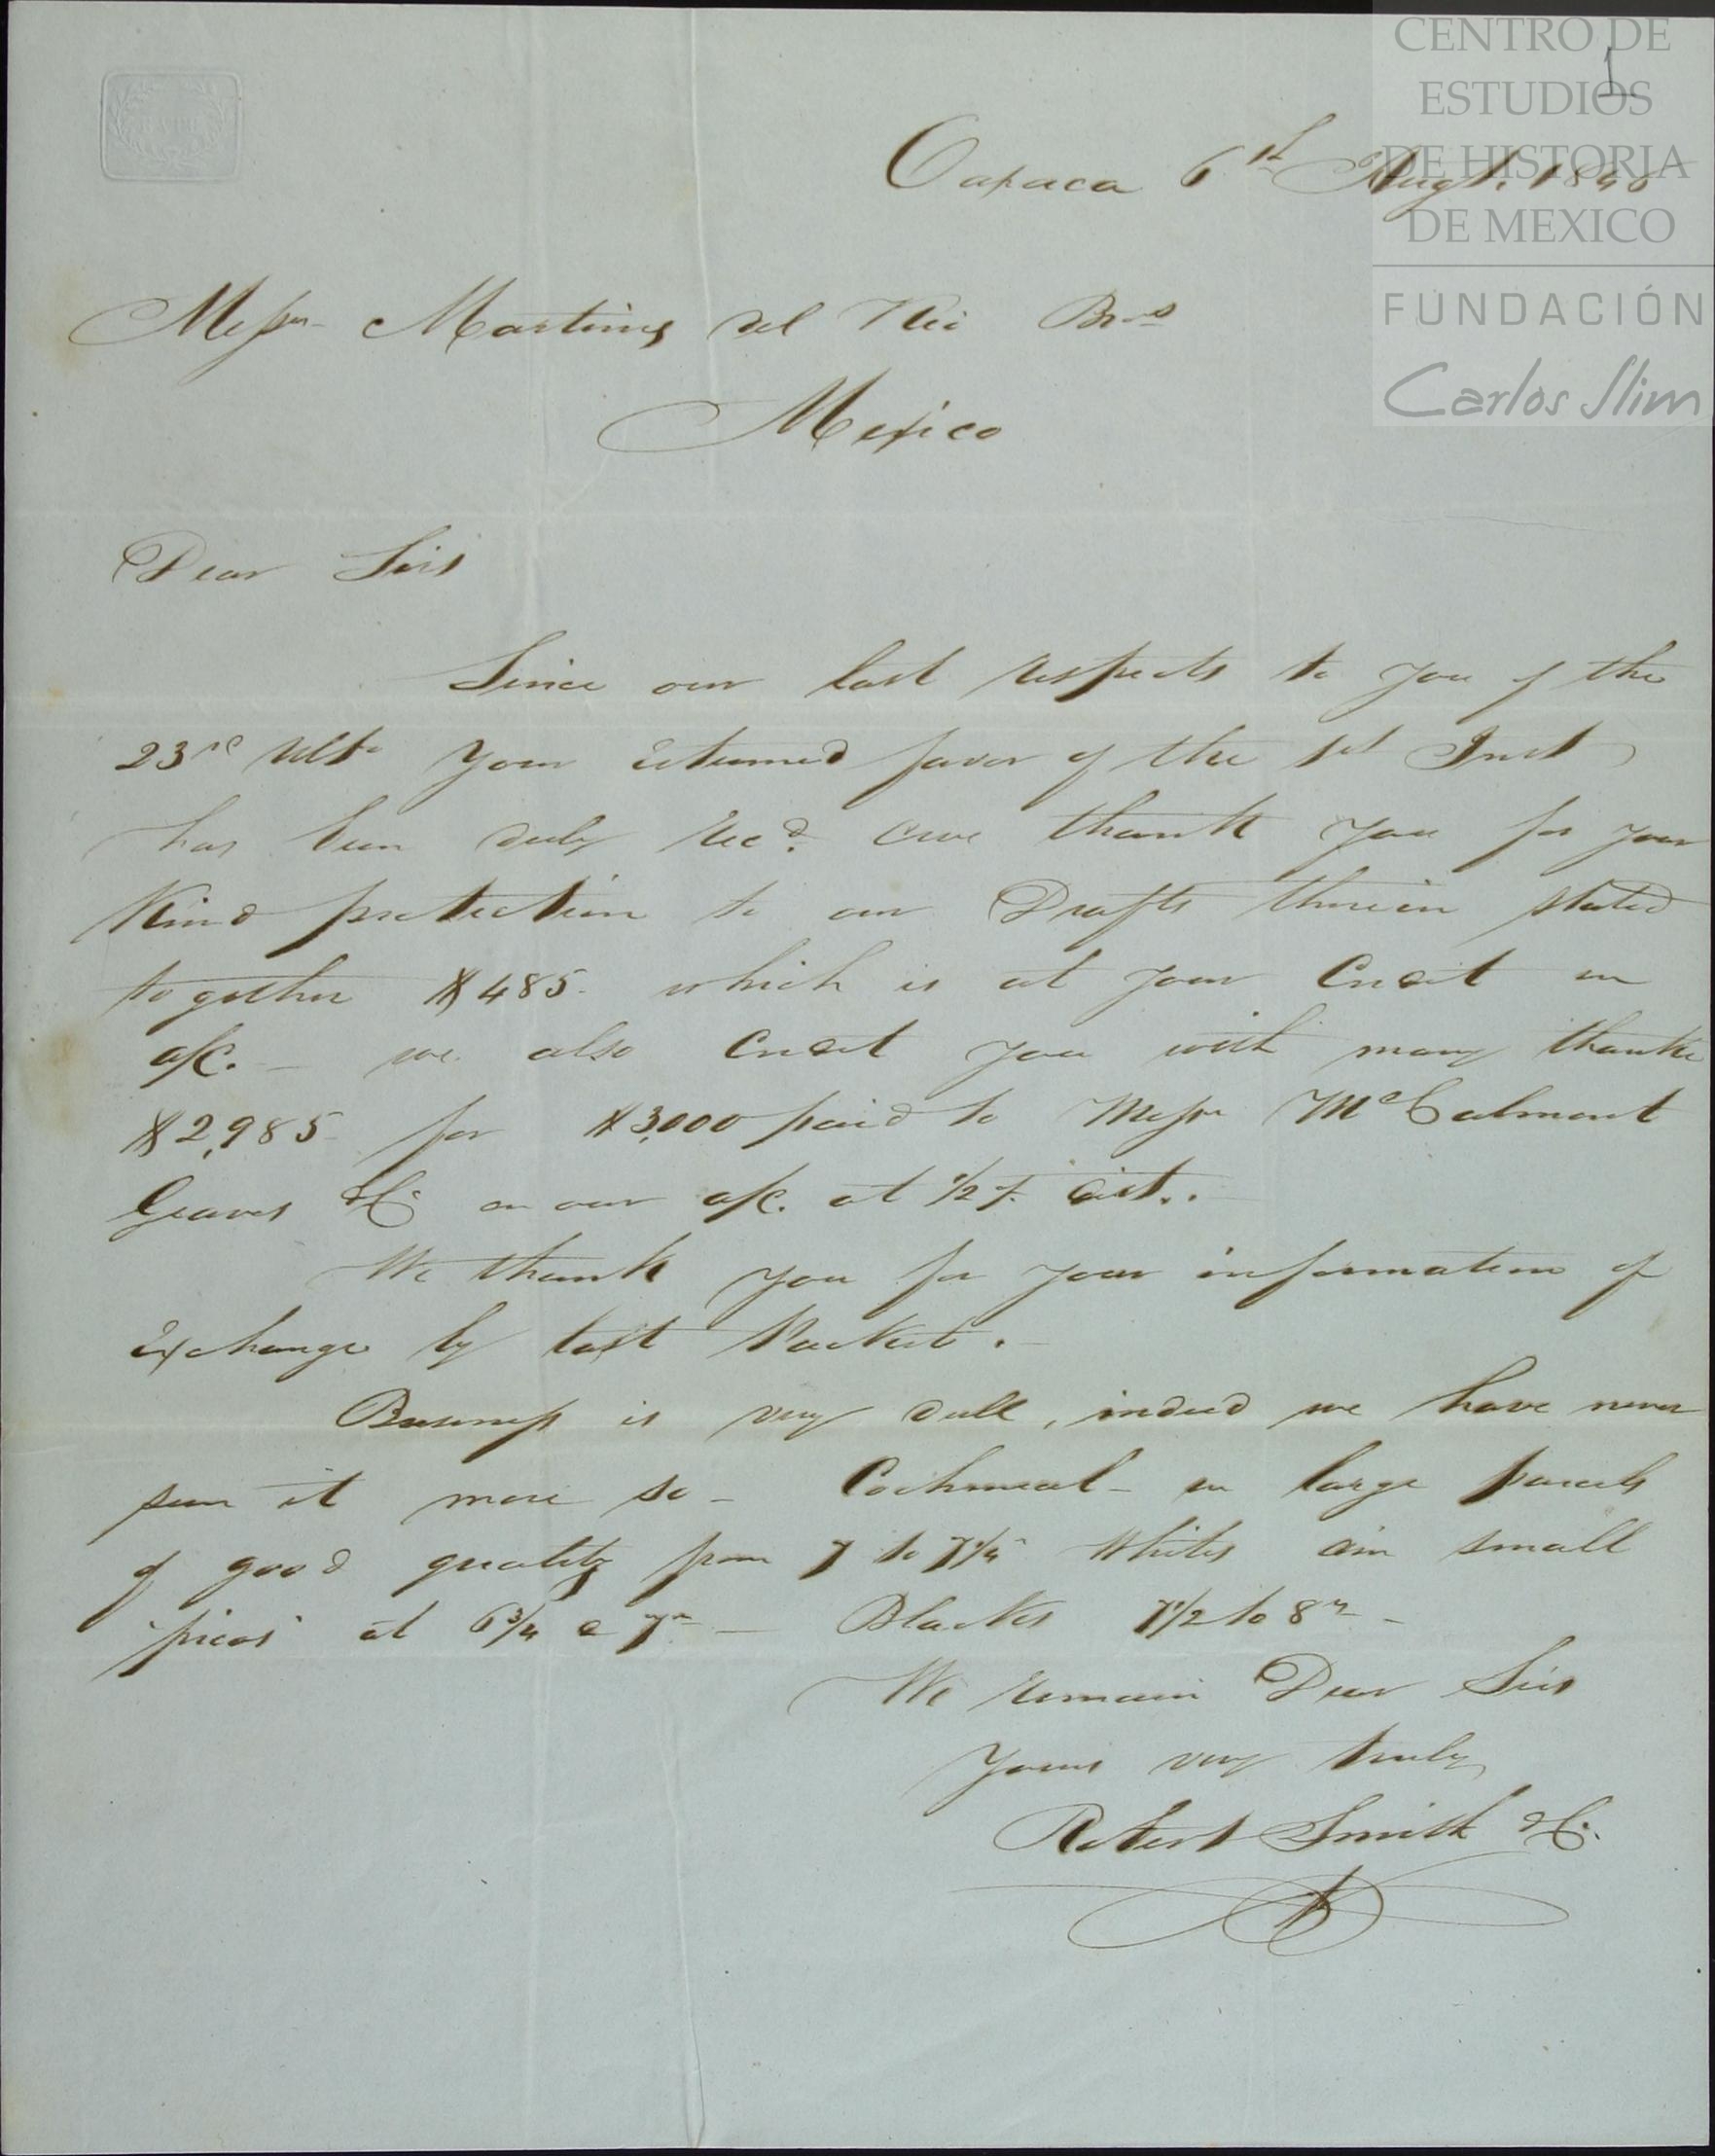 CENTRO DE
ESTUDIOS
DE HISTORIA
DE MEXICO
FUNDACIÓN
Carlos Slim
1
Oaxaca 6th Augt. 1840
Messrs Martinez del Rio Bros
Mexico
Dear Sirs
Since our last respects to you of the
23rd Ulto your esteemed favor of the 1st Inst
has been duly Recd. & we thank you for your
kind protection to our Drafts therein stated
together $485 which is at your Credit in
a/c. - we also Credit you with many thanks
$2,985 for $3,000 paid to Messrs McCalmont
Geaves & Co. on our a/c. at 1/2 %
We thank you for your information of
Exchange by last Packet. -
Business is very dull, indeed we have never
seen it more so - Cochineal - in large parcels
of good quality from 7 to 7 1/4 Whites & in small
at 6 3/4 a 7 rs - Blacks 7 1/2 to 8 rs -
We remain Dear Sirs
Yours very truly
Robert Smith & Co.